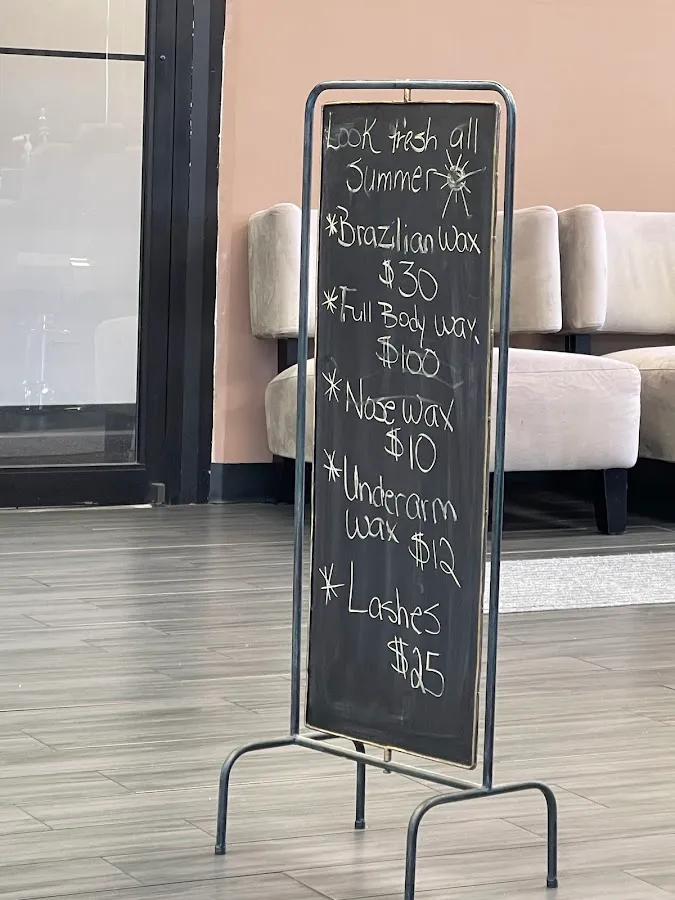 Look fresh all
Summer
*Brazilian wax
$30
*Full Body wax
$100
* Nose wax
$10
* Underarm
wax $12
* Lashes
$25